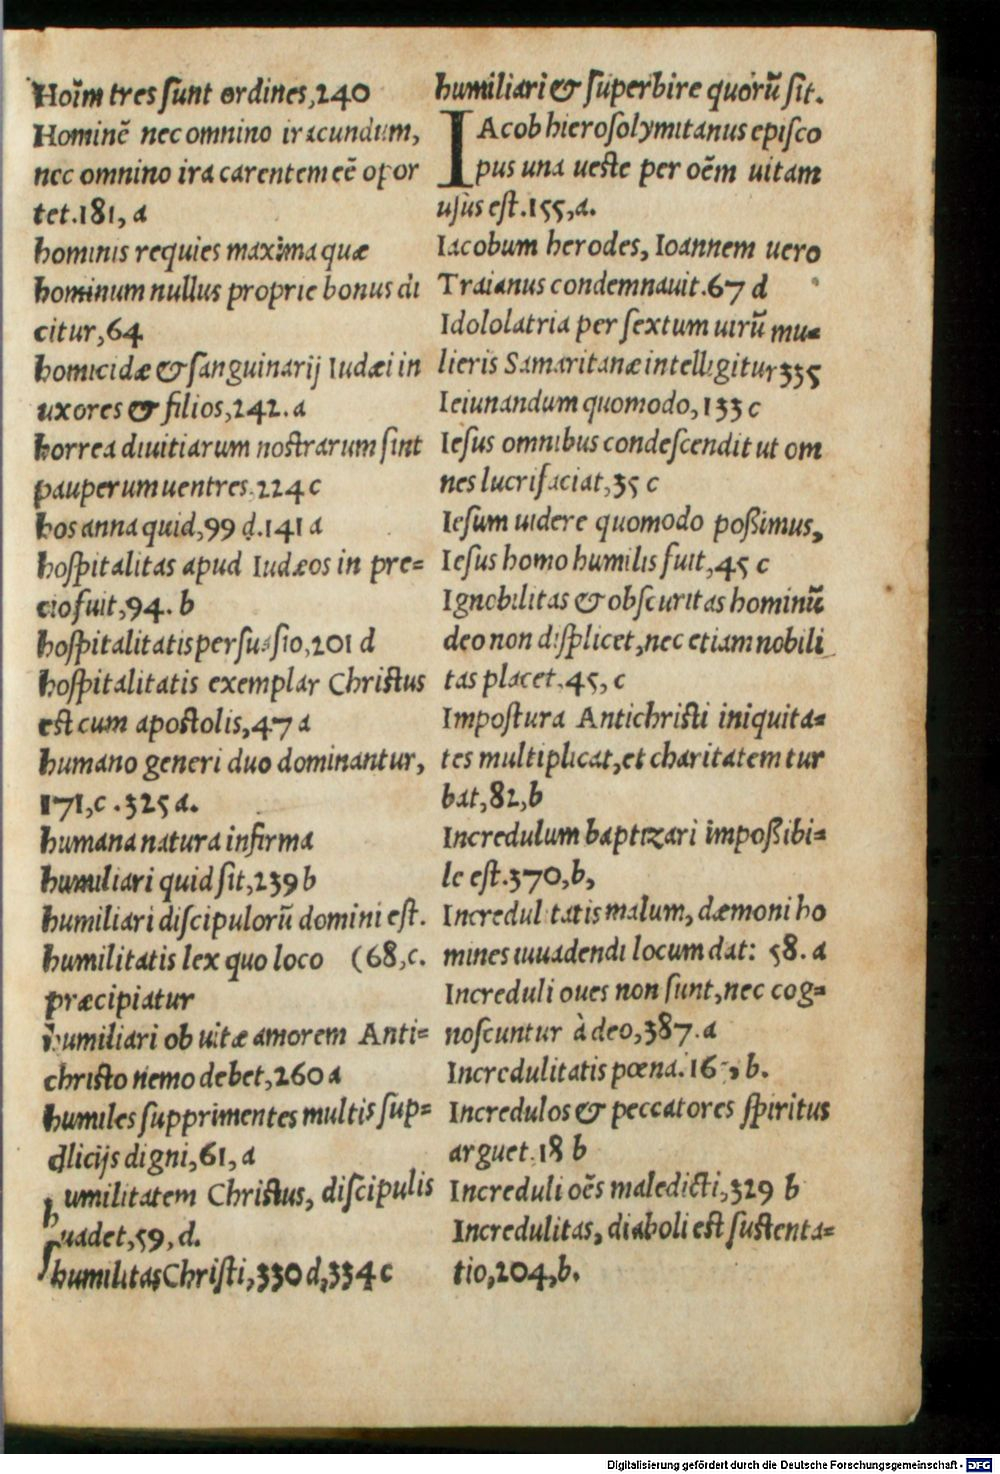 Hoĩm tres ſunt ordines,240
Hominẽ nec omnino iracundum,
nec omnino ira carentem eẽ opor
tet.181, a
hominis requies maxima quæ
hominum nullus proprie bonus di
citur,64
homicidæ & ſanguinarij Iudæi in
uxores & filios,242.a
horrea diuitiarum noſtrarum ſint
pauperum uentres.224 c
hos anna quid,99 d.141 a
hoſpitalitas apud Iudæos in pre=
cio fuit,94. b
hoſpitalitatis perſuaſio,201 d
hoſpitalitatis exemplar Chriſtus
eſt cum apoſtolis,47 a
humano generi duo dominantur,
171,c.325 a.
humana natura infirma
humiliari quid ſit,239 b
humiliari diſcipulorũ domini eſt.
humilitatis lex quo loco (68,c.
præcipiatur
humiliari ob uitæ amorem Anti=
chriſto nemo debet,260 a
humiles ſupprimentes multis ſup=
dlicijs digni,61,a
h umilitatem Chriſtus, diſcipulis
ſuadet,59,d.
humilitas Chriſti,330 d,334 c
humiliari & ſuperbire quorũ ſit.
IAcob hieroſolymitanus epiſco
pus una ueſte per oẽm uitam
uſus eſt.155,a.
Iacobum herodes, Ioannem uero
Traianus condemnauit.67 d
Idololatria per ſextum uirũ mu=
lieris Samaritanæ intelligitur 335
Ieiunandum quomodo,133 c
Ieſus omnibus condeſcendit ut om
nes lucrifaciat,35 c
Ieſum uidere quomodo poßimus,
Ieſus homo humilis fuit,45 c
Ignobilitas & obſcuritas hominũ
deo non diſplicet,nec etiam nobili
tas placet.45, c
Impoſtura Antichriſti iniquita=
tes multiplicat,et charitatem tur
bat,82,b
Incredulum baptizari impoßibi=
le eſt.370,b,
Incredulitatis malum, dæmoni ho
mines inuadendi locum dat: 58.a
Increduli oues non ſunt,nec cog=
noſcuntur à deo,387.a
Incredulitatis pœna. b.
Incredulos & peccatores ſpiritus
arguet.18 b
Increduli oẽs maledicti,329 b
Incredulitas, diaboli eſt ſuſtenta=
tio,204,b.
Digitalisierung gefördert durch die Deutsche Forschungsgemeinschaft - DFG